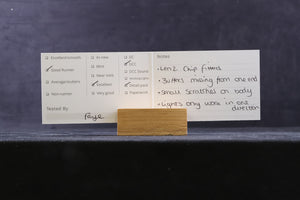 Excellent/smooth
Good Runner
Average/Jittery
Non-runner
Tested By
As new
Mint
Near mint
Excellent
Very good
DC
DCC
DCC Sound
Small post
Paperwork
Notes
• Lenz Chip fitted
• Buffers missing from one end
• Small Scratches on body
• Lights only work in one
direction